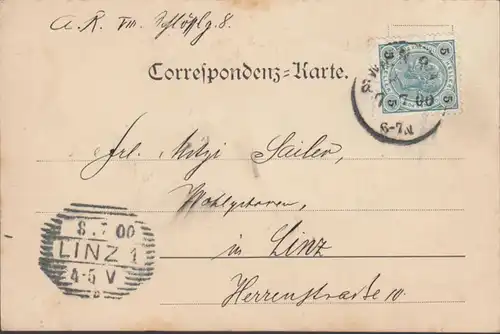 A. R. VIII. Schlößlg. 8.
Correspondenz=Karte.
5 5
5 5
7 7.00
6-7N
Frl. Mitzi Sailer,
Wohlgeboren,
in Linz
Herrenstraße 10.
8.7 00
LINZ 1
4-5 V